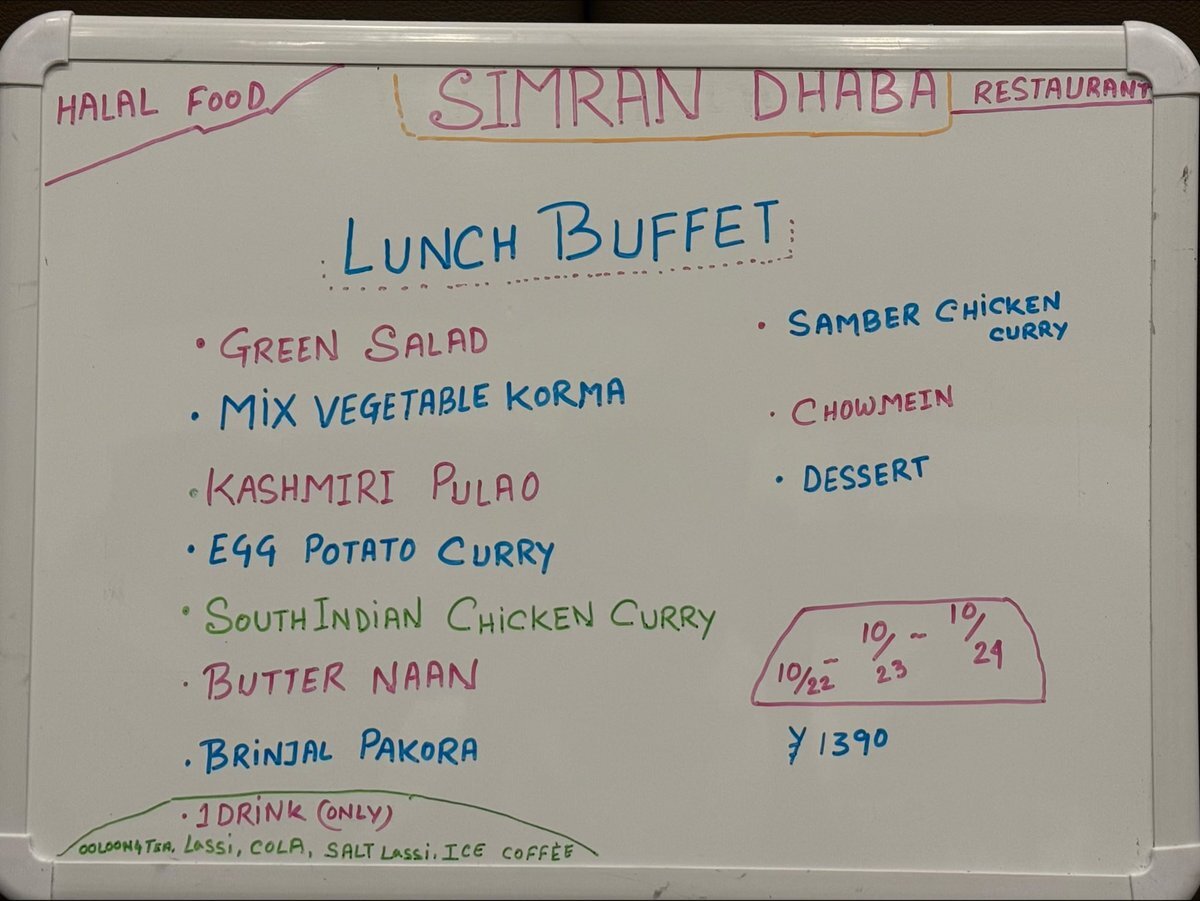 HALAL FOOD
SIMRAN DHABA
RESTAURANT
LUNCH BUFFET
• GREEN SALAD
• MIX VEGETABLE KORMA
• KASHMIRI PULAO
• EGG POTATO CURRY
• SOUTH INDIAN CHICKEN CURRY
• BUTTER NAAN
• BRINJAL PAKORA
• 1 DRINK (ONLY)
OOLOONG TEA, LASSI, COLA, SALT LASSI. ICE COFFEE
• SAMBER CHICKEN
CURRY
• CHOWMEIN
• DESSERT
10/22 - 10/23 - 10/24
¥ 1390